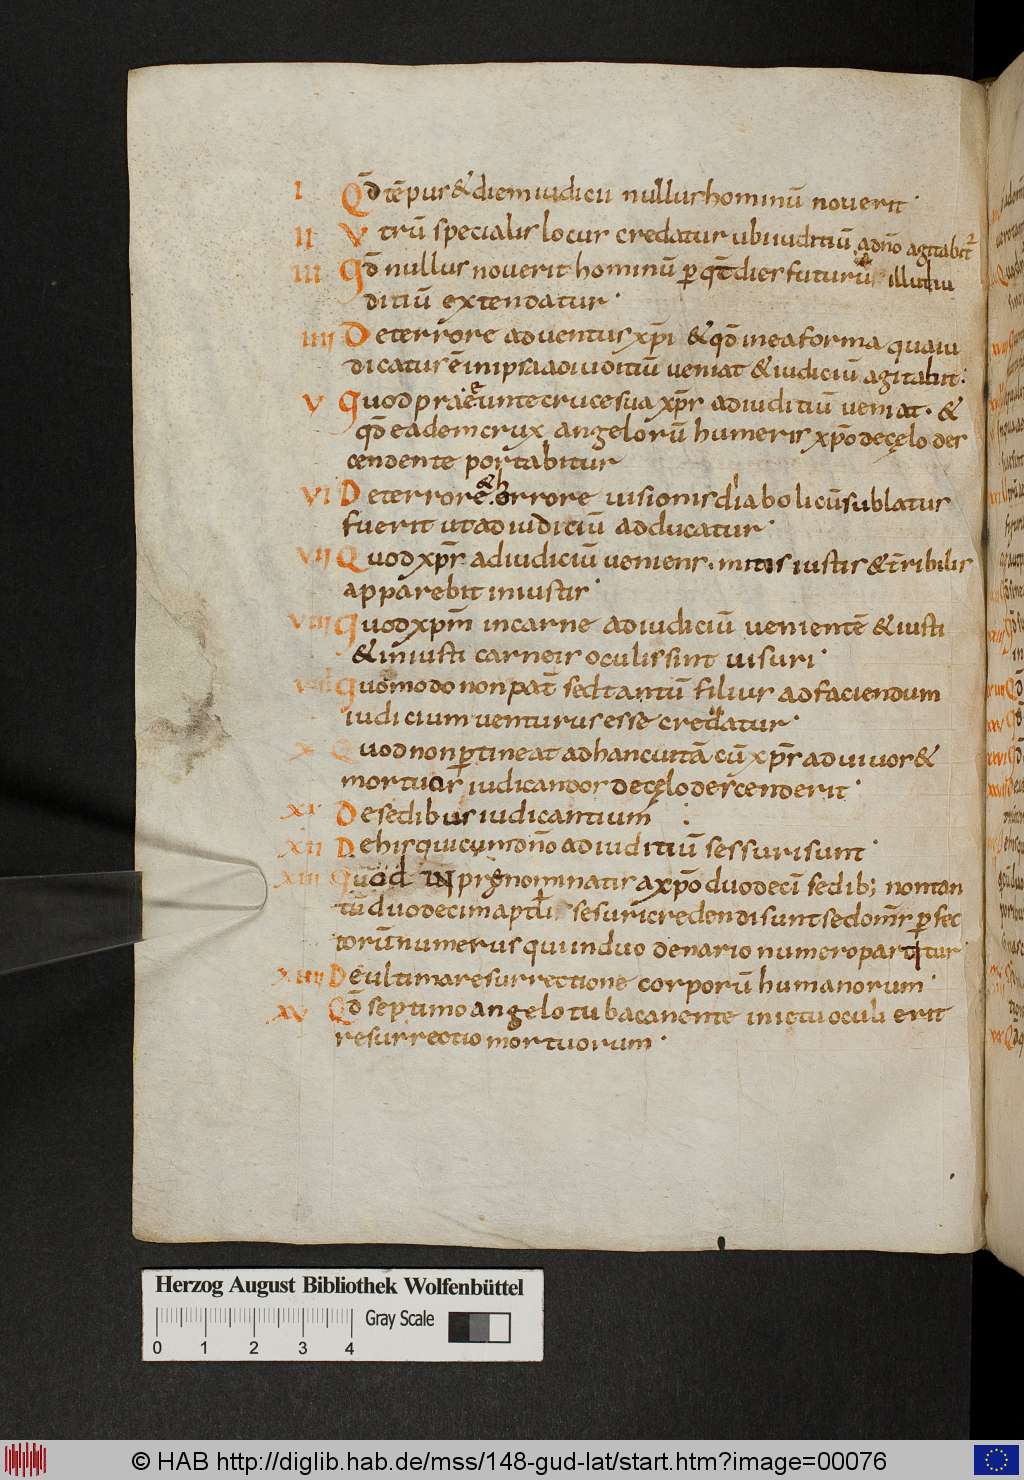 I Qd̄ tēpus & diem iudicii nullus hominū noverit.
II Utrū specialis locus credatur ubi iuditiū a dn̄o agitabit᷑
III Qd̄ nullus noverit hominū ꝑ qt̄ dies futurū illut iu
ditiū extendatur.
IIII De terrore adventus xp̄i & qd̄ in ea forma qua iu
dicatus ē in ipsa ad iuditiū veniat & iudiciū agitabit.
V Quod praeeunte cruce sua xp̄s ad iuditiū veniat. &
qd̄ eadem crux angelorū humeris xp̄o de cęlo des
cendente portabitur
VI De terrore & horrore visionis diabolicū sublatus
fuerit ut ad iudiciū adducatur.
VII Quod xp̄s ad iudiciū veniens. mitis iustis & t̄ribilis
apparebit iniustis.
VIII Quod xp̄m in carne ad iudiciū venientē & iusti
& iniusti carneis oculis sint visuri.
VIIII Quomodo non pat̄ sed tantū filius ad faciendum
iudicium venturus esse credatur.
X Quod non ꝑtineat ad hanc vitā cū xp̄s ad vivos &
mortuos iudicandos de cęlo descenderit.
XI De sedibus iudicantium
XII De his qui cum dn̄o ad iuditiū sessuri sunt.
XIII Quod in pręnominatis a xp̄o duodecī sedib; non tan
tū duodecim apt̄li sesuri credendi sunt sed om̄s ꝑfec
torū numerus qui in duodenario numero partitur
XIIII De ultima resurrectione corporū humanorum.
XV Qd̄ septimo angelo tuba canente in ictu oculi erit
resurrectio mortuorum.
Herzog August Bibliothek Wolfenbüttel
Gray Scale
0 1 2 3 4
© HAB http://diglib.hab.de/mss/148-gud-lat/start.htm?image=00076